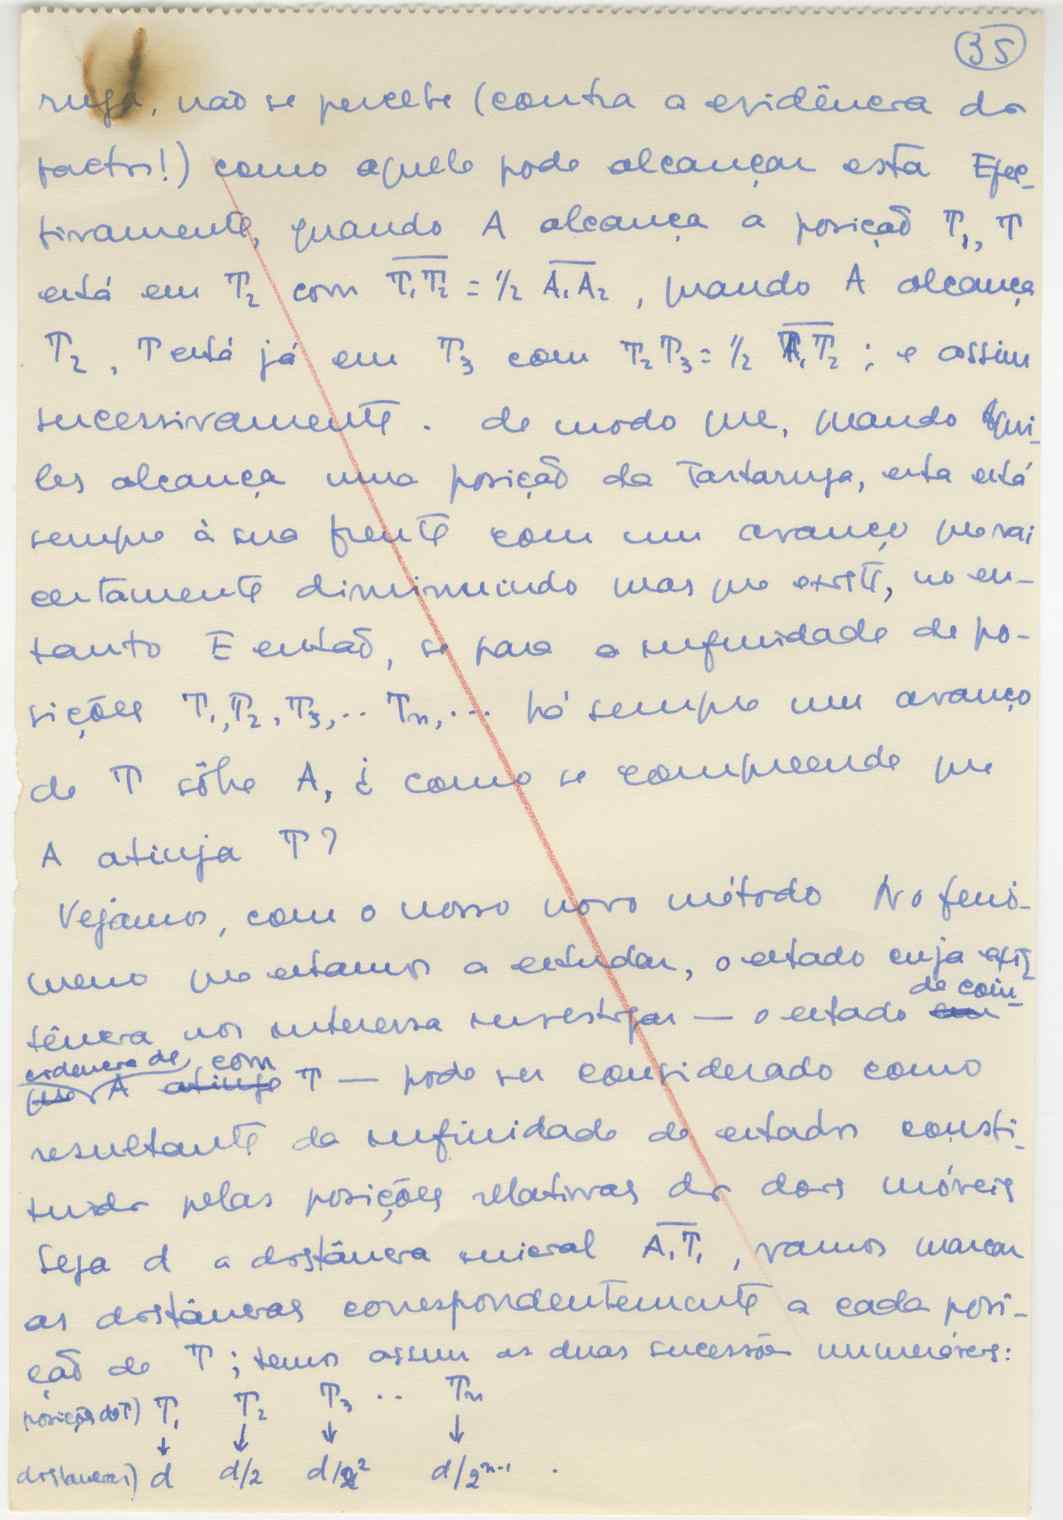 35
ruga, não se percebe (contra a evidência dos
factos!) como aquele pode alcançar esta Efec-
tivamente, quando A alcança a posição T₁, T
está em T₂ com T₁T₂ = 1/2 A₁A₂, quando A alcança
T₂, T está já em T₃ com T₂T₃ = 1/2 T₁T₂; e assim
sucessivamente. de modo que, quando Aqui-
les alcança uma posição da Tartaruga, esta está
sempre à sua frente com um avanço que vai
certamente diminuindo mas que existe, no en-
tanto E então, se para a infinidade de po-
sições T₁, T₂, T₃, .. Tₙ, ... há sempre um avanço
de T sôbre A, ¿ como se compreende que
A atinja T?
Vejamos, com o nosso novo método No fenó-
meno que estamos a estudar, o estado cuja exis-
de coin-
tência nos interessa investigar — o estado em
cidencia de com
que A atinge T — pode ser considerado como
resultante da infinidade de estados consti-
tuida pelas posições relativas dos dois móveis
Seja d a distância inicial A₁T₁, vamos marcar
as distâncias correspondentemente a cada posi-
ção de T; temos assim as duas sucessões numeráveis:
posições de T) T₁ T₂ T₃ .. Tₙ
↓ ↓ ↓ ↓
distancias) d d/2 d/2² d/2ⁿ⁻¹ .